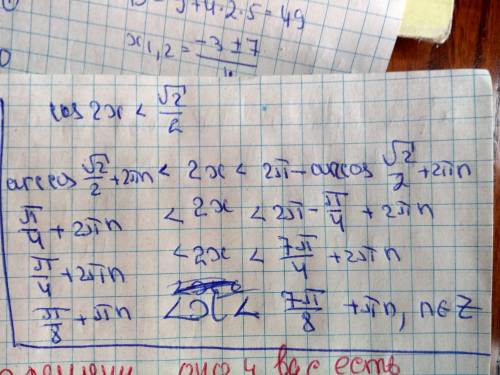 D = 9+4·2·5 = 49
x₁,₂ = (-3±7)/4
cos 2x < √2/2
arccos √2/2 + 2πn < 2x < 2π - arccos √2/2 + 2πn
π/4 + 2πn < 2x < 2π - π/4 + 2πn
π/4 + 2πn < 2x < 7π/4 + 2πn
π/8 + πn < x < 7π/8 + πn, n∈Z
вас есть